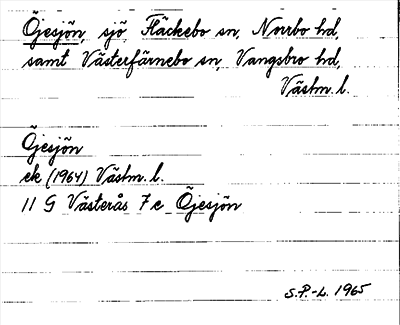 Öjesjön, sjö, Fläckebo sn, Norrbo hd,
samt Västerfärnebo sn, Vangsbro hd,
Västm. l.
Öjesjön
ek (1964) Västm. l.
11 G Västerås 7 c Öjesjön
S.P.-L. 1965